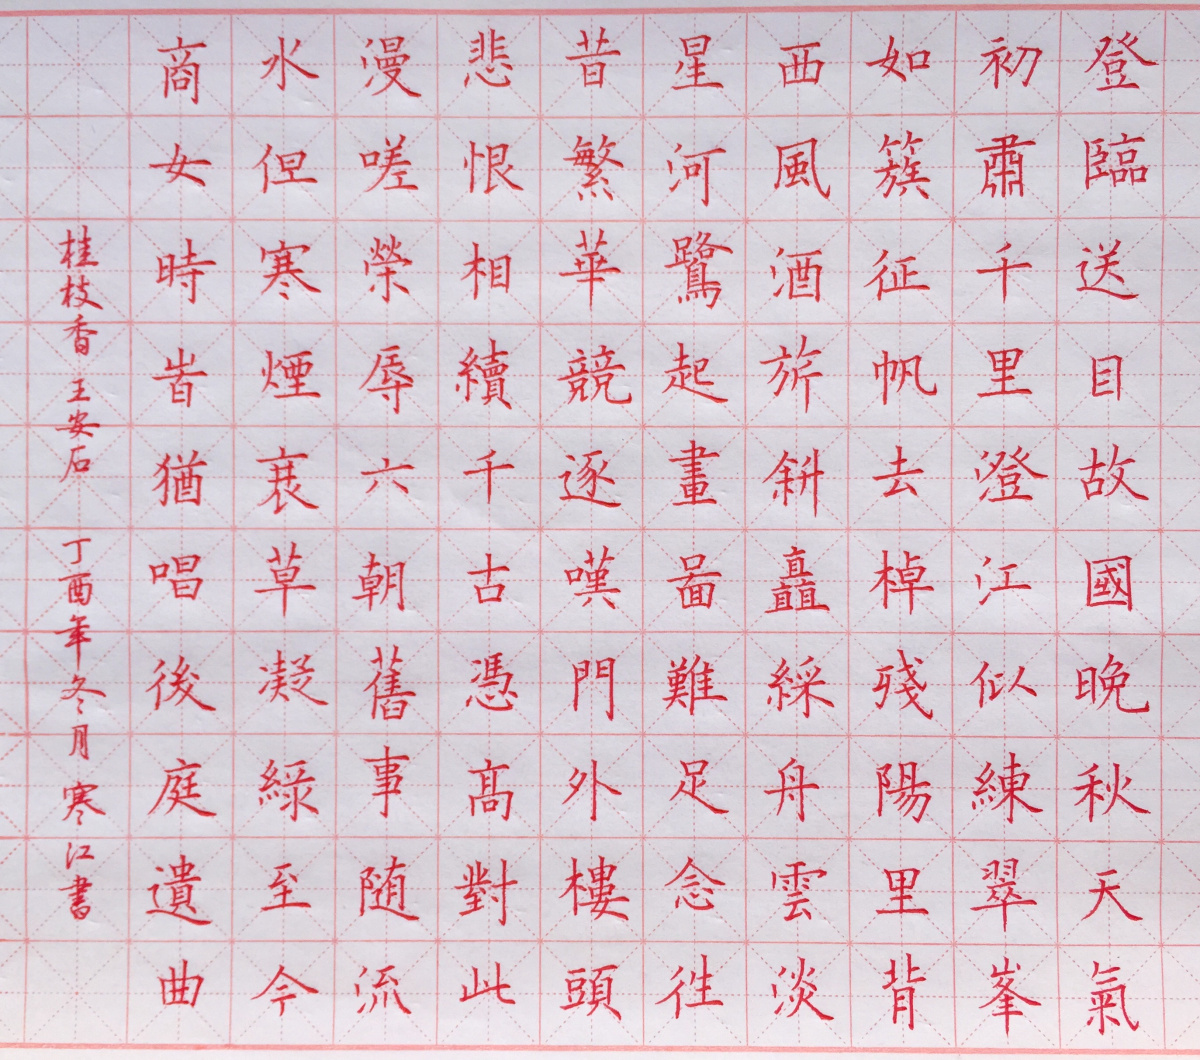 登臨送目故國晚秋天氣
初肅千里澄江似練翠峯
如簇征帆去棹殘陽里背
西風酒旂斜矗綵舟雲淡
星河鷺起畫啚難足念往
昔繁華競逐嘆門外樓頭
悲恨相續千古憑高對此
漫嗟榮辱六朝舊事随流
水但寒煙衰草凝綠至今
商女時時猶唱後庭遺曲
桂枝香 王安石 丁酉年冬月 寒江書